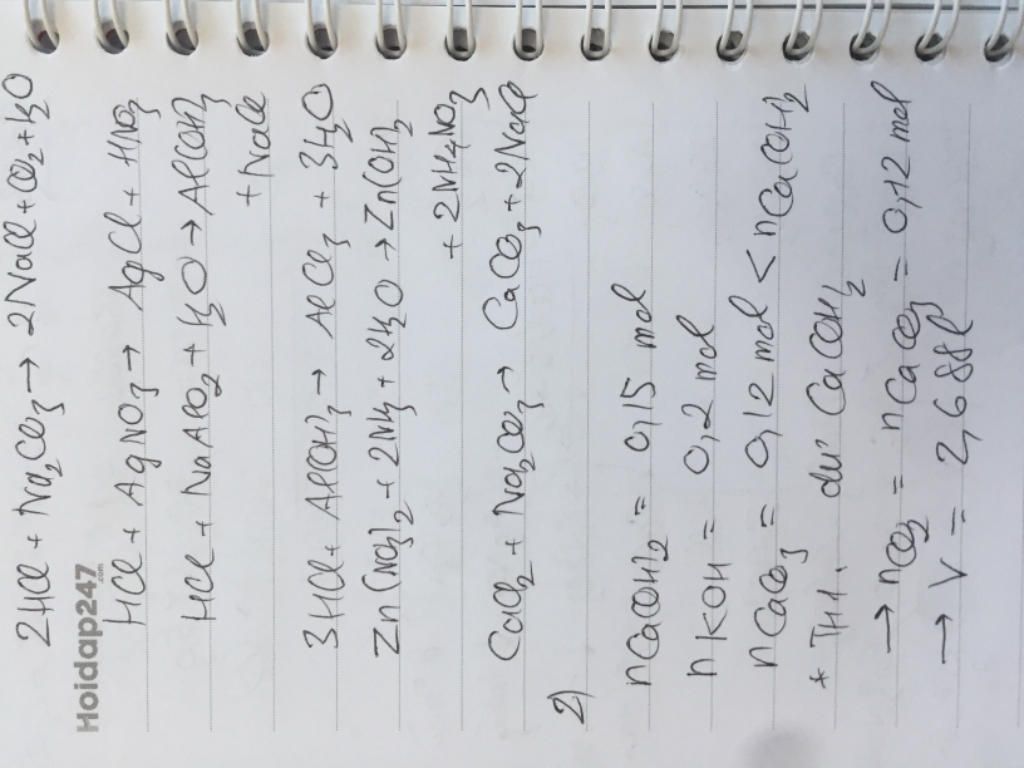 2HCl + Na2CO3 → 2NaCl + CO2 + H2O
Hoidap247.com
HCl + AgNO3 → AgCl + HNO3
HCl + NaAlO2 + H2O → Al(OH)3
+ NaCl
3HCl + Al(OH)3 → AlCl3 + 3H2O
Zn(NO3)2 + 2NH3 + 2H2O → Zn(OH)2
+ 2NH4NO3
CaCl2 + Na2CO3 → CaCO3 + 2NaCl
2)
nCa(OH)2 = 0,15 mol
nKOH = 0,2 mol
nCaCO3 = 0,12 mol < nCa(OH)2
* TH1. dư Ca(OH)2
→ nCO2 = nCaCO3 = 0,12 mol
→ V = 2,688l